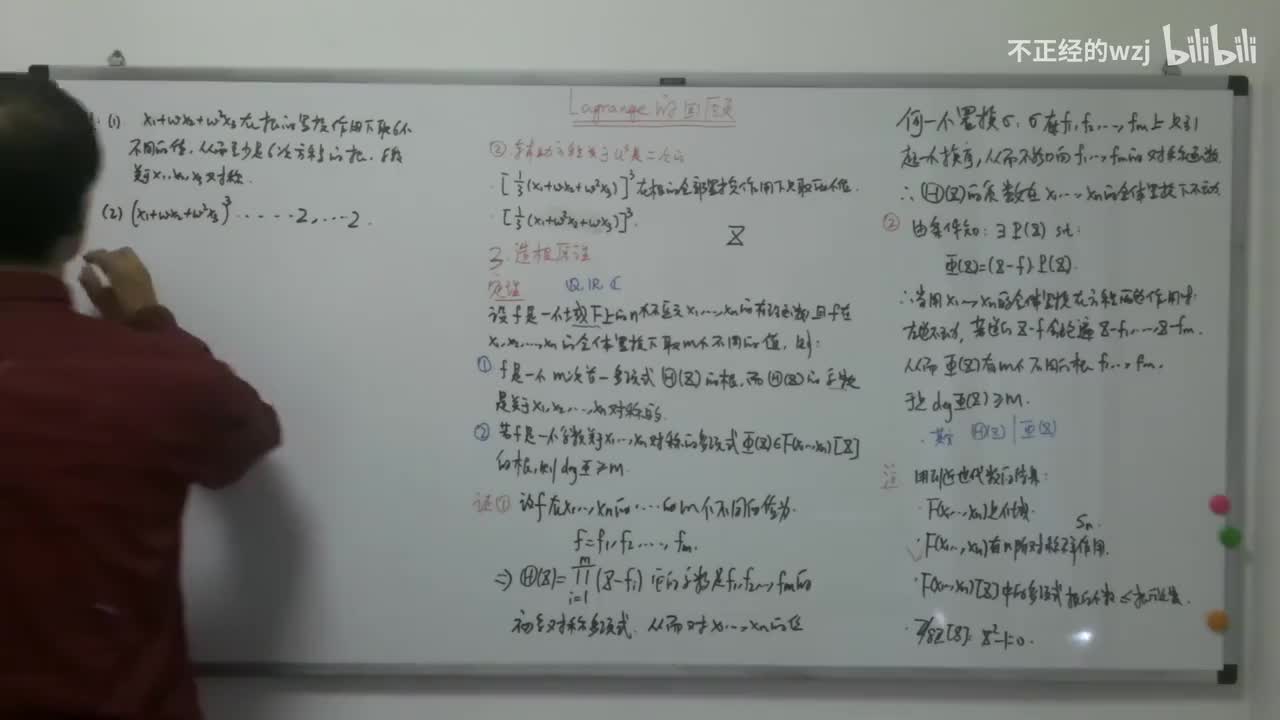 不正经的wzj bilibili
Lagrange的回顾
(1) x₁+ωx₂+ω²x₃在根的置换作用下取6个
不同的值,从而至少是6次方程的根,系数
关于x₁,x₂,x₃对称.
(2) (x₁+ωx₂+ω²x₃)³ ‧‧‧‧‧2, ‧‧‧2.
② 辅助方程关于u³是二次的
· [⅓(x₁+ωx₂+ω²x₃)]³在根的全部置换作用下只取两个值.
· [⅓(x₁+ω²x₂+ωx₃)]³.
3. 造根原理
定理 Q, R, C
设f是一个域F上的n个不定元x₁,…,xₙ的有理函数且f在
x₁,x₂,…,xₙ的全体置换下取m个不同的值,则:
① f是一个m次首一多项式Ⓗ(Z)的根,而Ⓗ(Z)的系数
是关于x₁,x₂,…,xₙ对称的.
② 若f是一个系数关于x₁,…,xₙ对称的多项式Φ(Z)∈F(x₁,…,xₙ)[Z]
的根,则deg Φ≥m.
证① 设f在x₁,…,xₙ的‧‧‧‧下的m个不同的值为
f=f₁,f₂,…,fₘ.
⇒ Ⓗ(Z)=∏ᵢ₌₁ᵐ(Z-fᵢ) 它的系数是f₁,f₂,…,fₘ的
初等对称多项式. 从而对x₁,…,xₙ的任
Z
何一个置换σ, σ在f₁,f₂,…,fₘ上只引
起一个换序,从而不影响f₁,…,fₘ的对称函数.
∴ Ⓗ(Z)的系数在x₁,…,xₙ的全体置换下不动
② 由条件知: ∃P(Z) st:
Φ(Z)=(Z-f)·P(Z).
∴当用x₁,…,xₙ的全体置换在方程两边作用时,
左边不动,右边的Z-f会跑遍Z-f₁,…,Z-fₘ.
从而Φ(Z)有m个不同的根f₁,…,fₘ.
于是deg Φ(Z)≥m.
· 其实 Ⓗ(Z)|Φ(Z)
注 用到近世代数的结果:
· F(x₁,…,xₙ)是个域.
· F(x₁,…,xₙ)有n阶对称群Sₙ作用.
· F(x₁,…,xₙ)[Z]中的多项式根的个数≤其次数.
· Z/8Z[Z]: Z²-1=0.